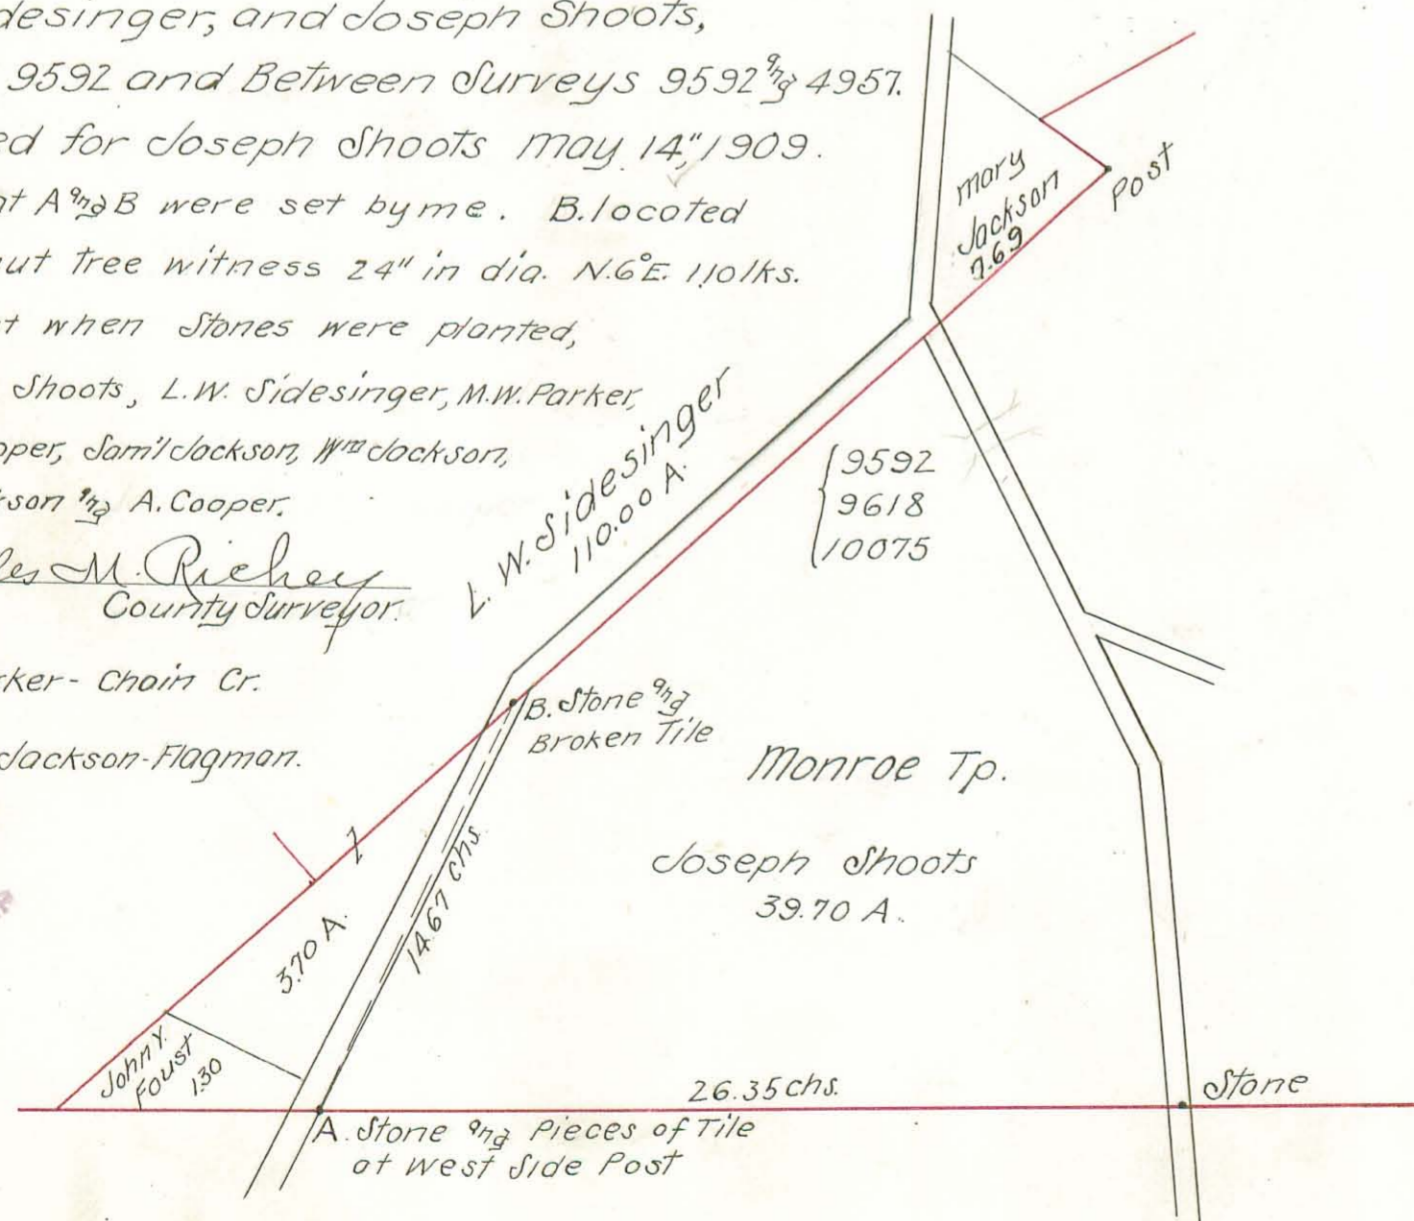 desinger, and Joseph Shoots,
9592 and Between Surveys 9592 and 4957.
ed for Joseph Shoots May 14," 1909.
nt A and B were set by me. B. located
nut Tree witness 24" in dia. N.6°E. 110 lks.
t when Stones were planted,
Shoots, L.W. Sidesinger, M.W. Parker,
oper, Sam'l Jackson, Wm Jackson,
kson and A. Cooper.
les M. Richey
County Surveyor.
rker - Chain Cr.
Jackson - Flagman.
Mary
Jackson
7.69
Post
L. W. Sidesinger
110.00 A.
9592
9618
10075
B. Stone and
Broken Tile
Monroe Tp.
Joseph Shoots
39.70 A.
14.67 chs.
3.70 A.
John Y.
Foust
1.30
26.35 chs.
Stone
A. Stone and Pieces of Tile
at West Side Post